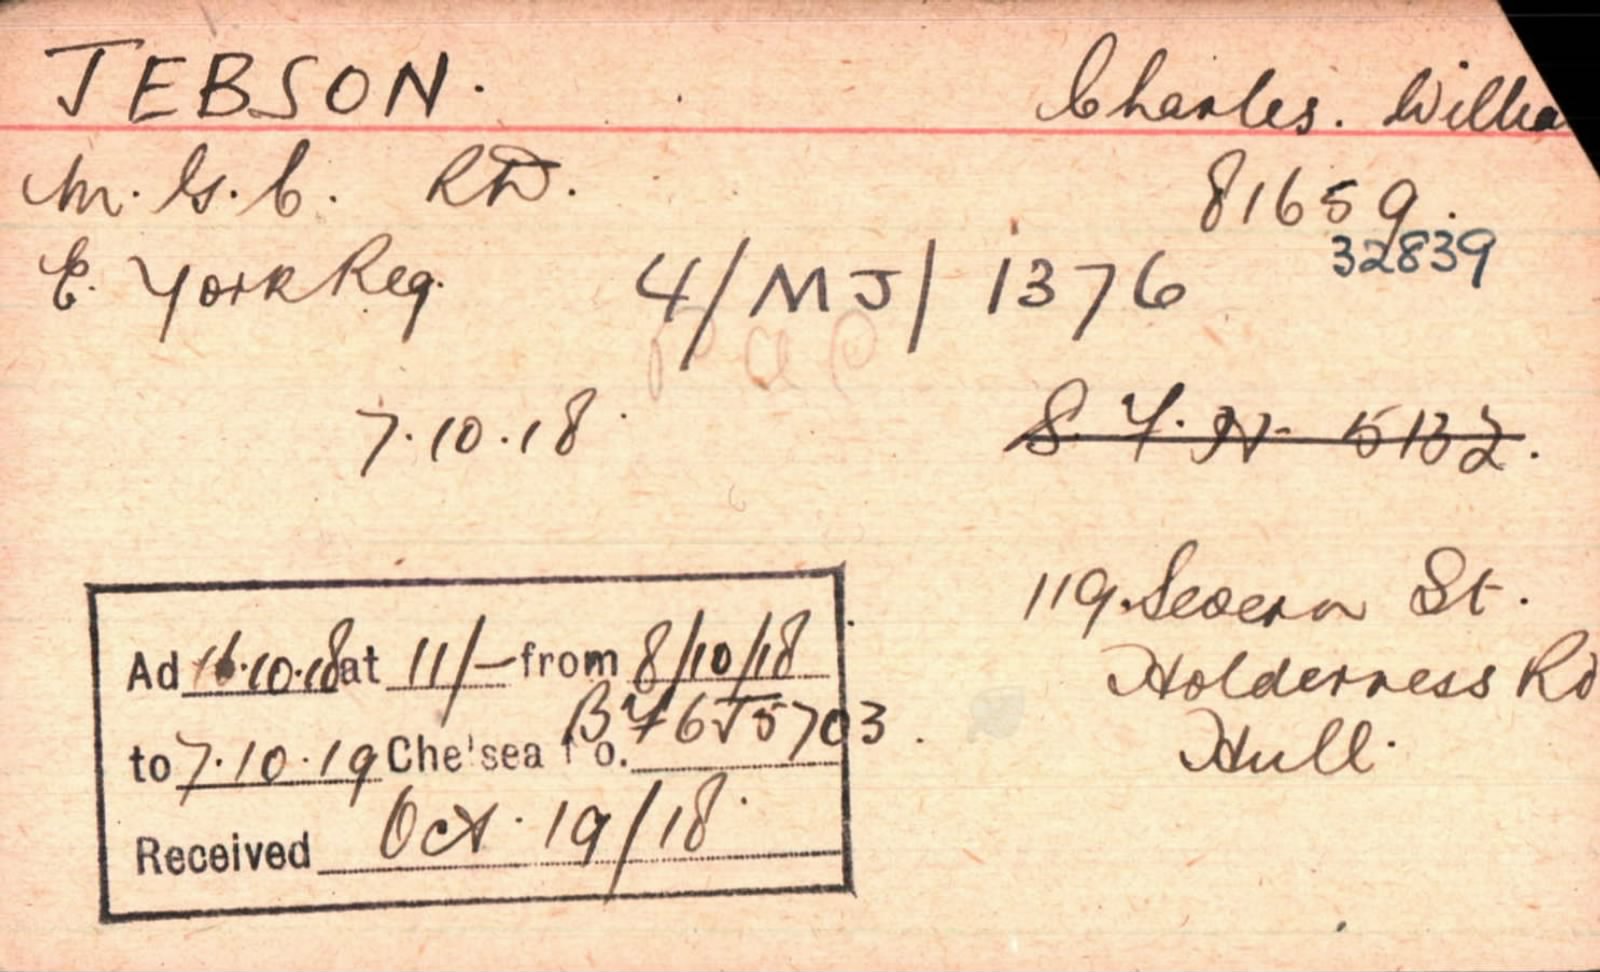 JEBSON. Charles. Willia
M.G.C. 81659.
E. York Reg. 4/MJ/1376 32839
7.10.18 S.F.N. 5132.
119. Severn St.
Holderness Rd
Hull.
Ad 16.10.18 at 11/- from 8/10/18
to 7.10.19 Chelsea No. 5703.
Received Oct. 19/18.